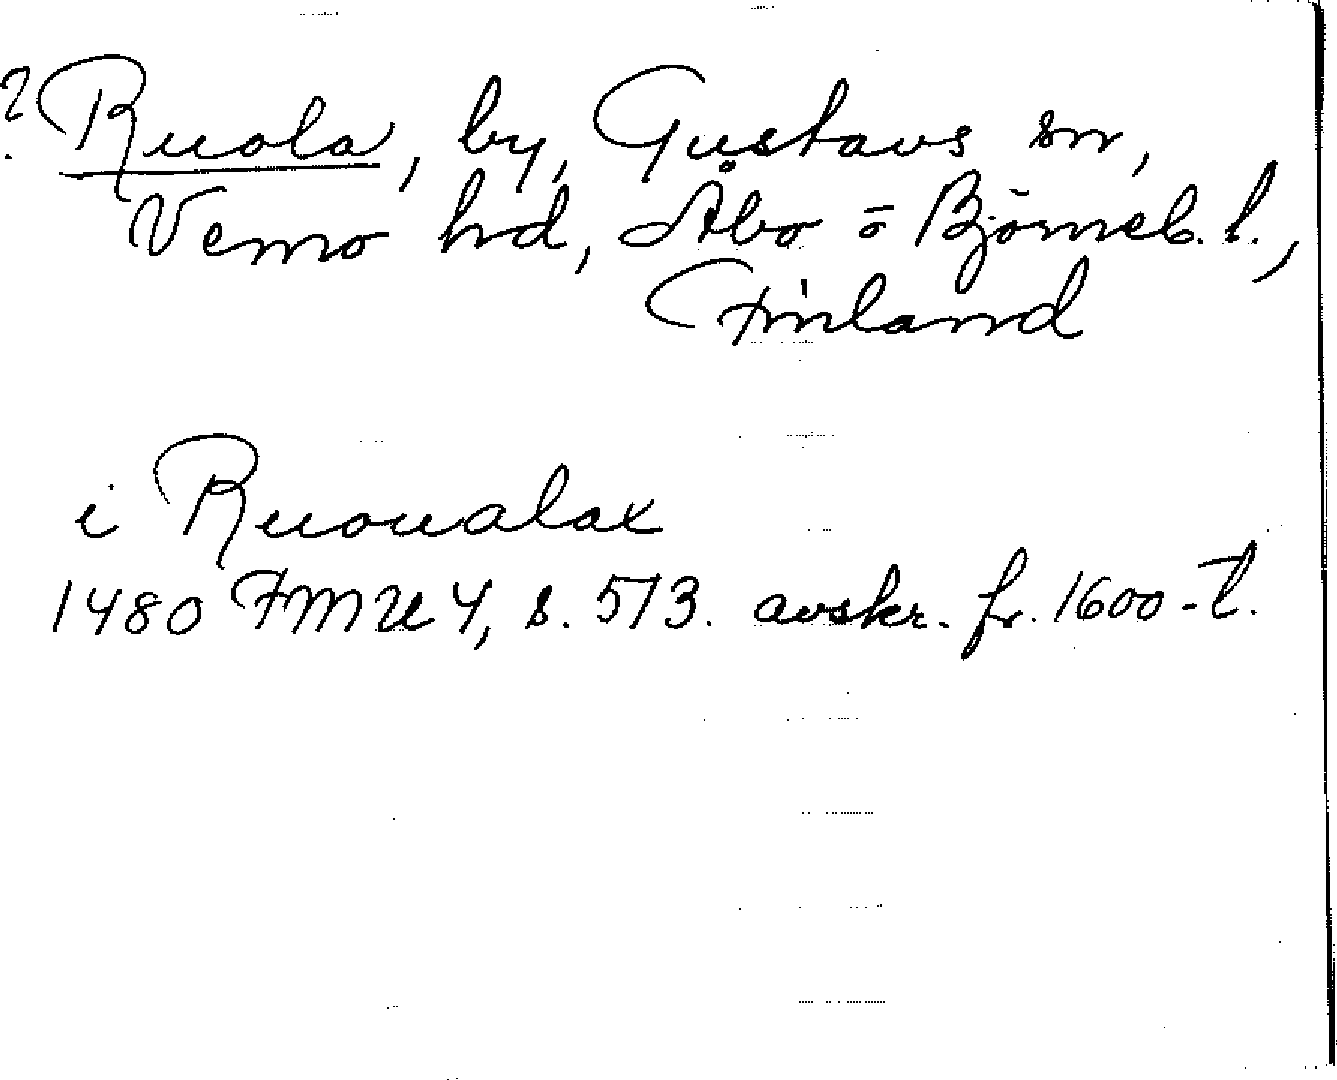 ? Ruola, by, Gustavs sn,
Vemo hd, Åbo o Björneb. l.,
Finland
i Ruoualax
1480 FMU 4, s. 513. avskr. fr. 1600-t.